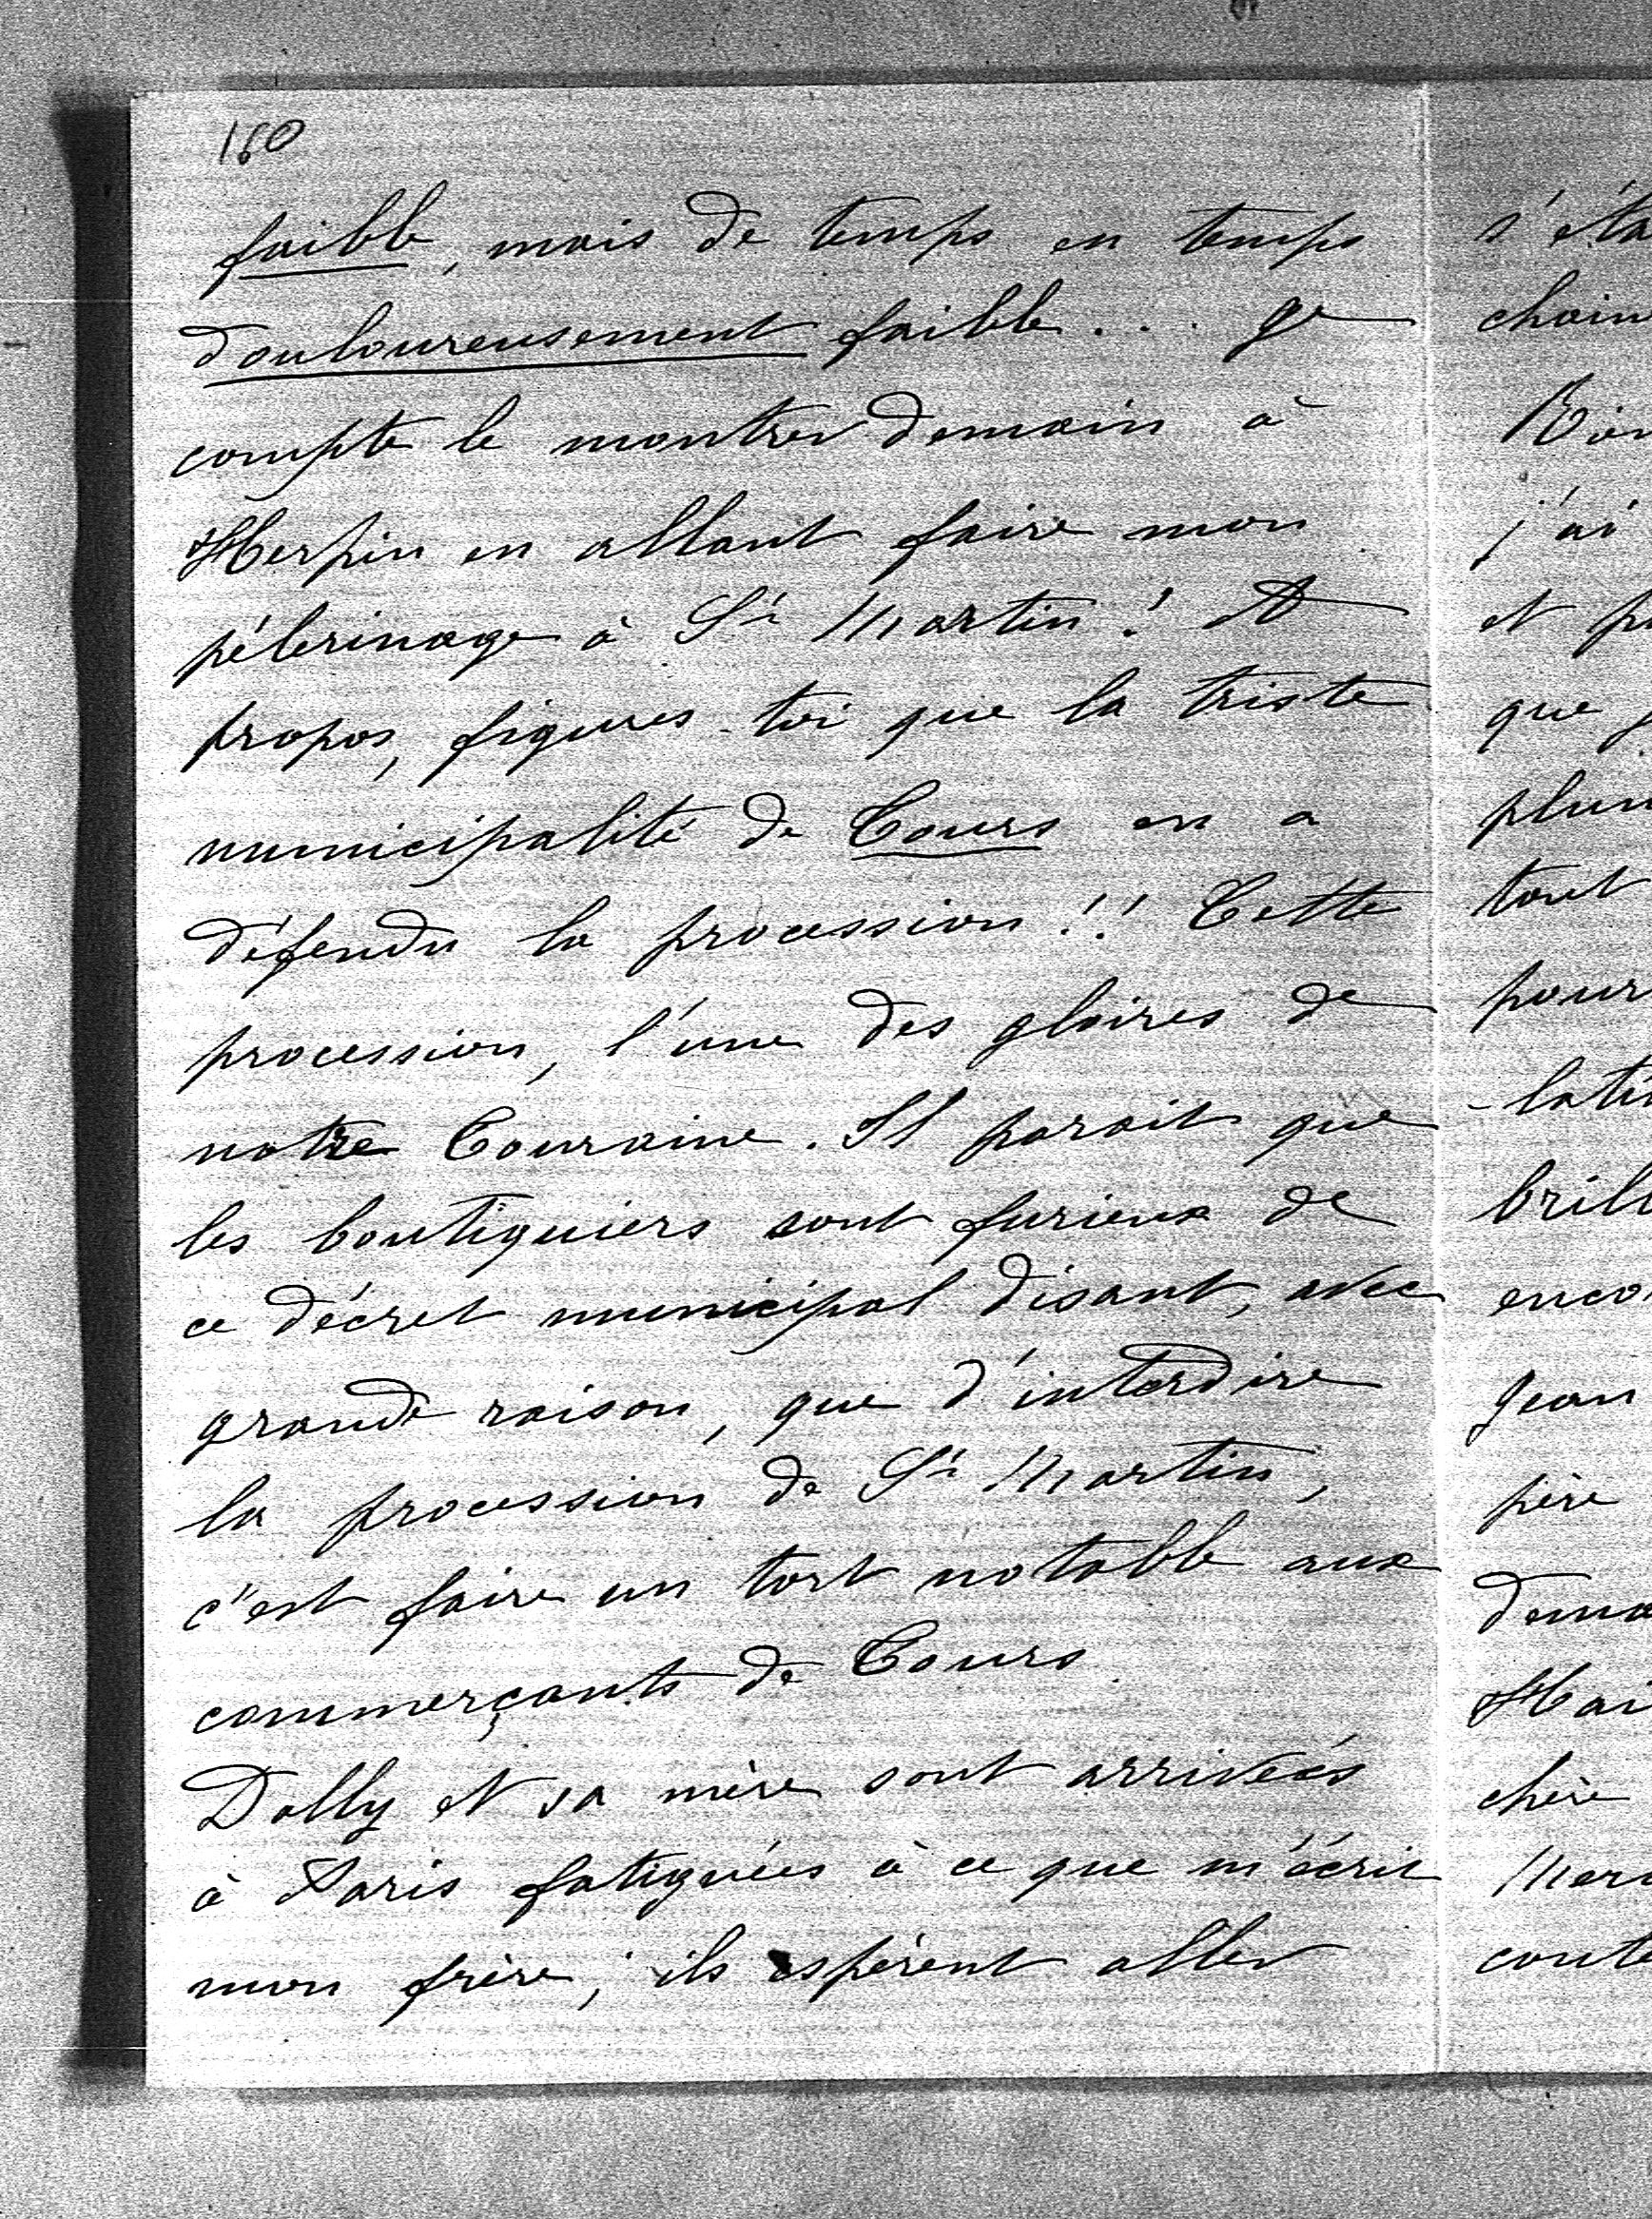 160
faible, mais de temps en temps
douloureusement faible... Je
compte le montrer demain à
Herpin en allant faire mon
pélerinage à St Martin! A
propos, figures-toi que la triste
municipalité de Tours en a
défendu la procession!! Cette
procession, l'une des gloires de
notre Touraine. Il parait que
les boutiquiers sont furieux de
ce décret municipal disant, avec
grande raison, que d'interdire
la procession de St Martin,
c'est faire un tort notable aux
commerçants de Tours.
Dolly et sa mère sont arrivées
à Paris fatiguées à ce que m'écrit
mon frère; ils espèrent aller
j'ai
que
tout
pour
Jean
père
chère